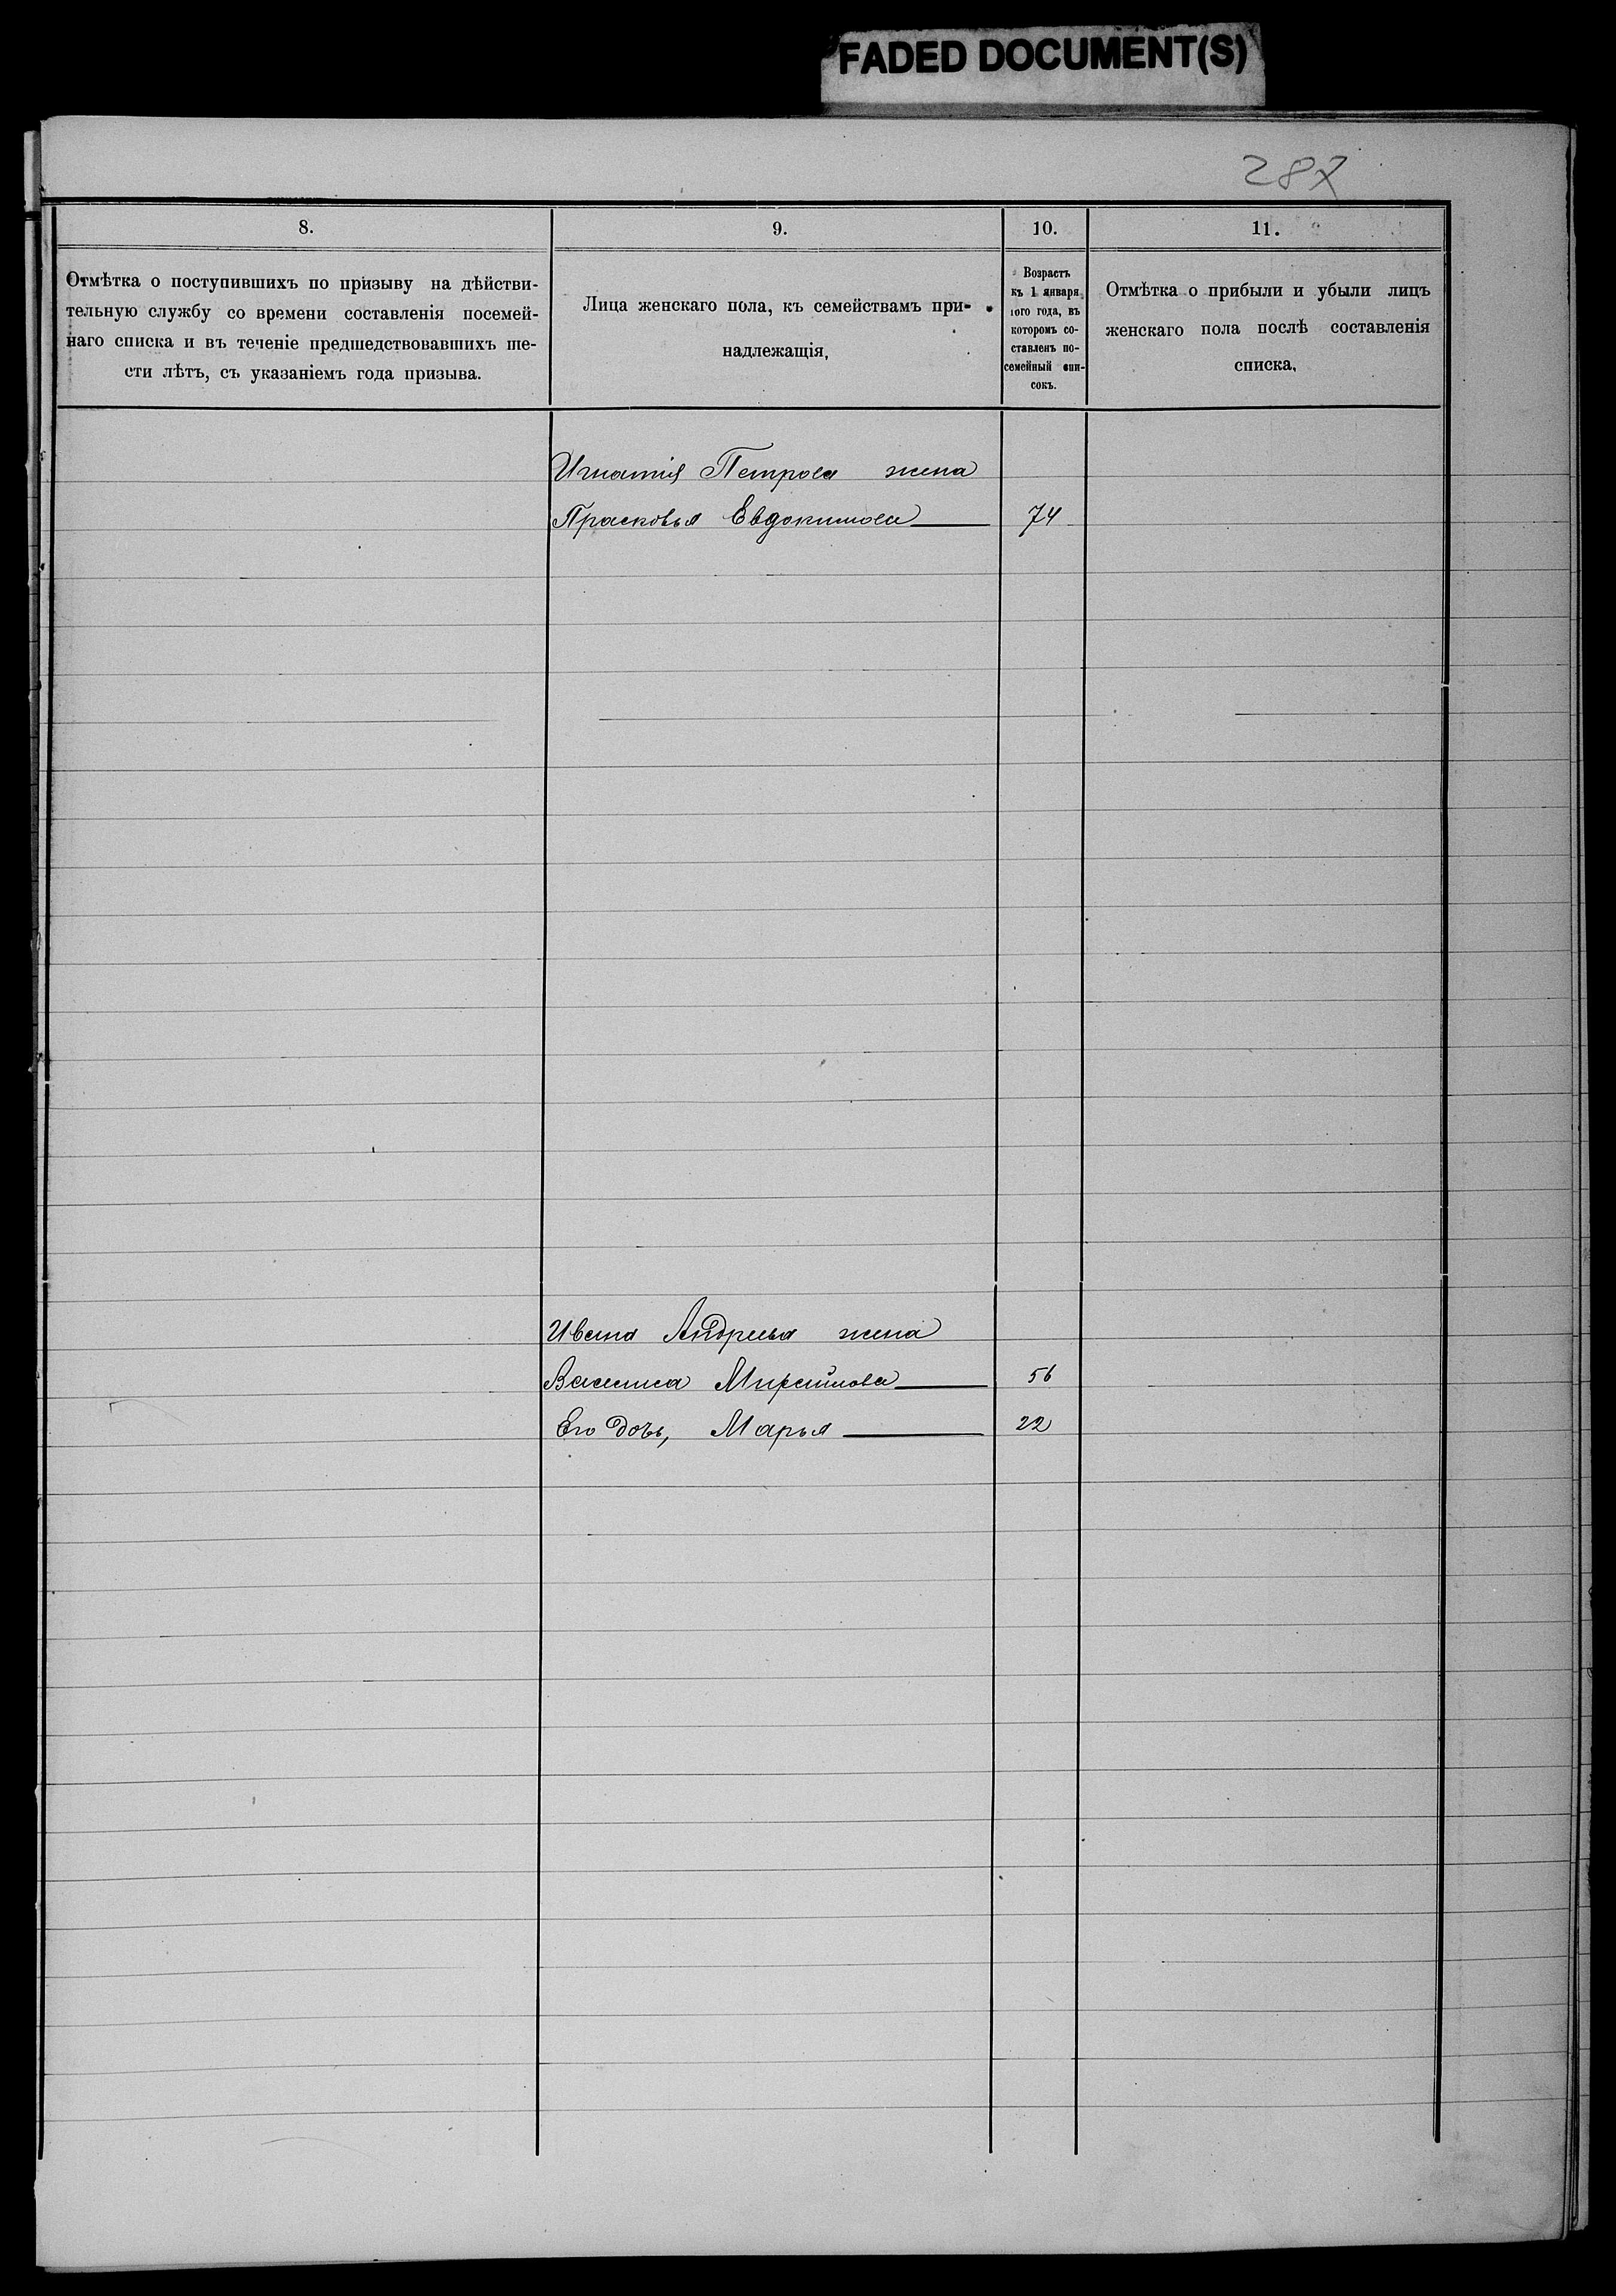 FADED DOCUMENT(S)
287
8.
9.
10.
11.
Отмѣтка о поступившихъ по призыву на дѣйстви-
тельную службу со времени составленія посемей-
наго списка и въ теченіе предшедствовавшихъ ше-
сти лѣтъ, съ указаніемъ года призыва.
Лица женскаго пола, къ семействамъ при-
надлежащія,
Возрастъ
къ 1 января
того года, въ
которомъ со-
ставленъ по-
семейный спи-
сокъ.
Отмѣтка о прибыли и убыли лицъ
женскаго пола послѣ составленія
списка.
Игнатія Петрова жена
Прасковья Евдокимова 74
Ивана Андреева жена
Василиса 56
Его дочь, Марья 22